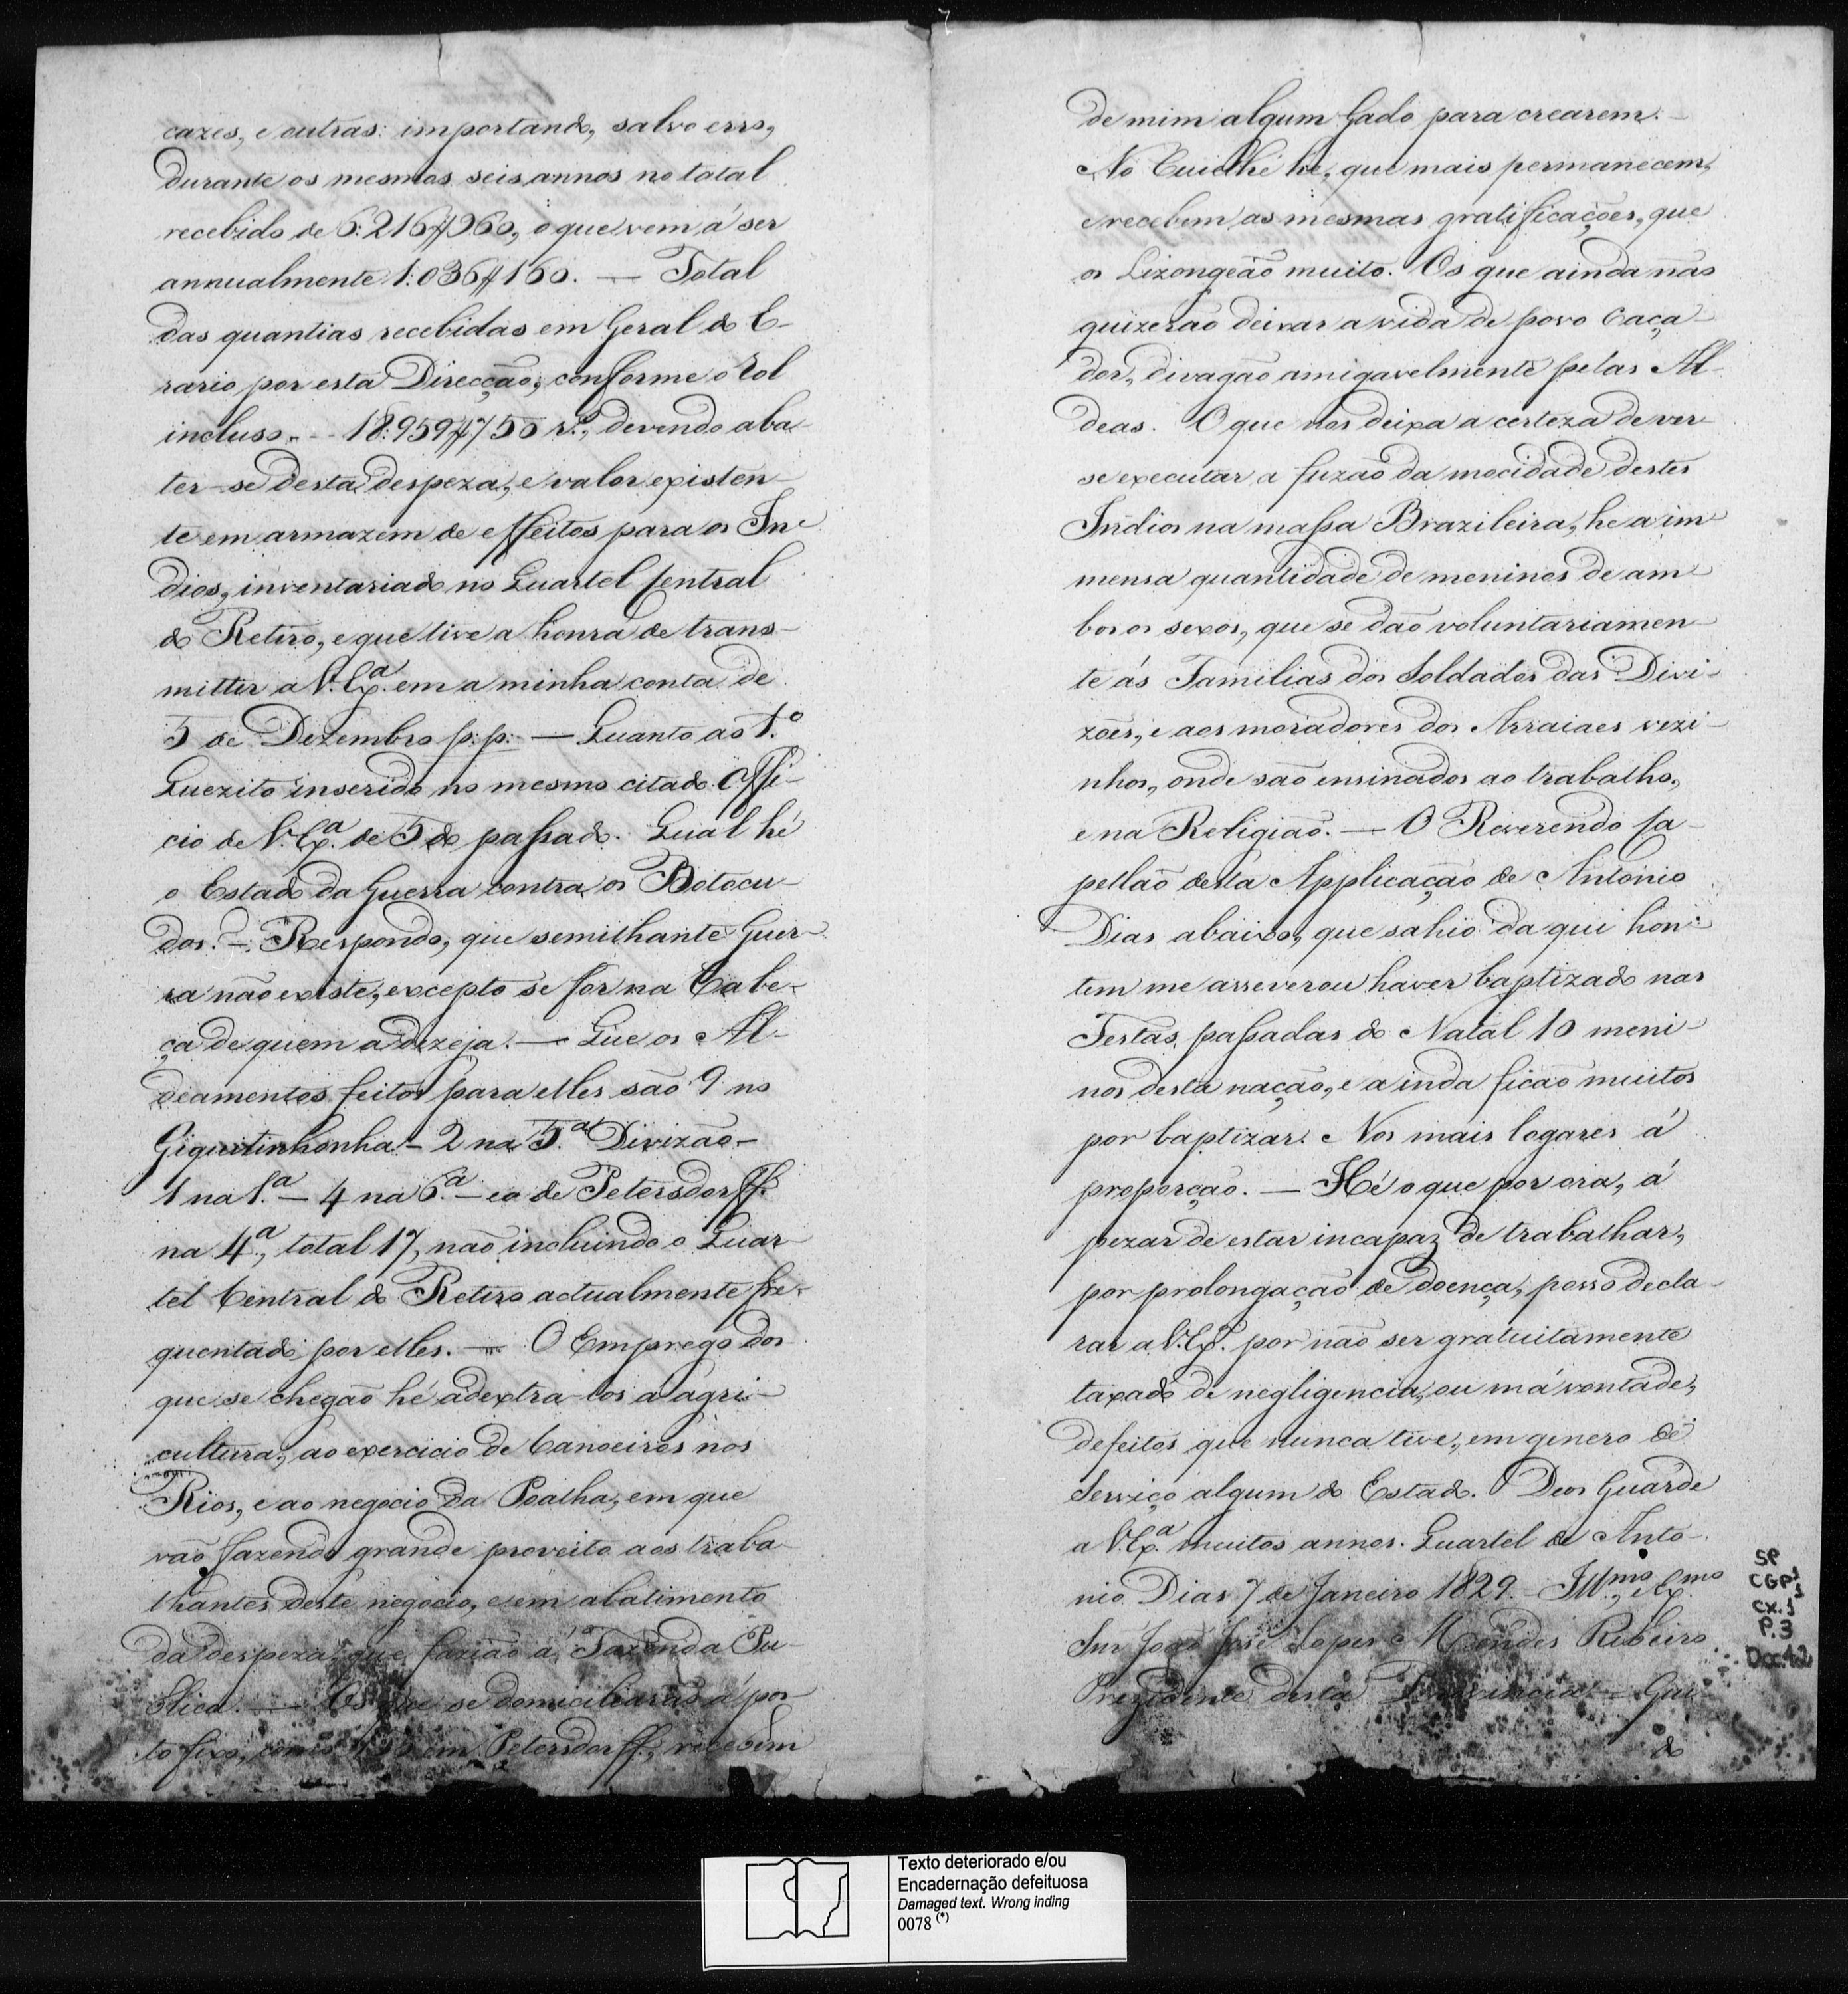 cazes, e outras: importando, salvo erro,
durante os mesmos seis annos no total
recebido de 6:216$960, o que vem á ser
annualmente 1:036$160. — Total
das quantias recebidas em Geral do E-
rario por esta Direcção, conforme o Rol
incluso - - 18:959$750 rs., devendo aba-
ter-se desta despeza, e valor existen-
te em armazem de effeitos para os In-
dios, inventariado no Quartel Central
do Retiro, e que tive a honra de trans-
mitter a V. Exª. em a minha conta de
5 de Dezembro p: p: — Quanto ao 1.º
Quezito inserido no mesmo citado Offi-
cio de V. Exª. de 5 do passado. Qual hé
o Estado da Guerra contra os Botocu-
dos? — Respondo, que semilhante Guer-
ra não existe, excepto se for na Cabe-
ça de quem a dezeja. — Que os Al-
deamentos feitos para elles são 9 no
Giquitinhonha - 2 na 5.ª Divizão -
1 na 1.ª - 4 na 6.ª - eo de Petersdorff.
na 4.ª, total 17, não incluindo o Quar-
tel Central do Retiro actualmente fre-
quentado por elles. — O Emprego dos
que se chegão hé adextra-los á agri-
cultura, ao exercicio de Canoeiros nos
Rios, e ao negocio da Poalha, em que
vão fazendo grande proveito aos traba-
lhantes deste negocio, e em abatimento
da despeza que farião á Fazenda Pu-
blica. — Os que se domiciliarão á pon-
to fixo, como em Petersdorff, recebem
de mim algum Gado para crearem. -
No Cuiethé he, que mais permanecem,
e recebem as mesmas gratificações, que
os Lizongeão muito. Os que ainda não
quizerão deixar a vida de povo Caça-
dor, divagão amigavelmente pelas Al-
deas. O que nos deixa a certeza de ver-
se executar a fuzão da mocidade destes
Indios na massa Brazileira, he a im-
mensa quantidade de meninos de am-
bos os sexos, que se dão voluntariamen-
te ás Familias dos Soldados das Divi-
zões, e aos moradores dos Arraiaes vezi-
nhos, onde são ensinados ao trabalho,
e na Religião. — O Reverendo Ca-
pellão desta Applicação de Antonio
Dias abaixo, que sahio da qui hon-
tem me asseverou haver baptizado nas
Festas passadas do Natal 10 meni-
nos desta nação, e ainda ficão muitos
por baptizar. Nos mais logares á
proporção. — Hé o que por ora, á
pezar de estar incapaz de trabalhar,
por prolongação de doença, posso decla-
rar a V. Exª. por não ser gratuitamente
taxado de negligencia, ou má vontade,
defeitos que nunca tive, em genero de
Serviço algum do Estado. Deos Guarde
a V. Exª. muitos annos. Quartel de Anto-
nio Dias 7 de Janeiro 1829. - Illmo. e Exmo.
Snr João José Lopes Mendes Ribeiro
Prezidente desta Provincia - Gui-
do
SP
CGP1
cx. 1
P.3
Doc.42
Texto deteriorado e/ou
Encadernação defeituosa
Damaged text. Wrong inding
0078 (*)